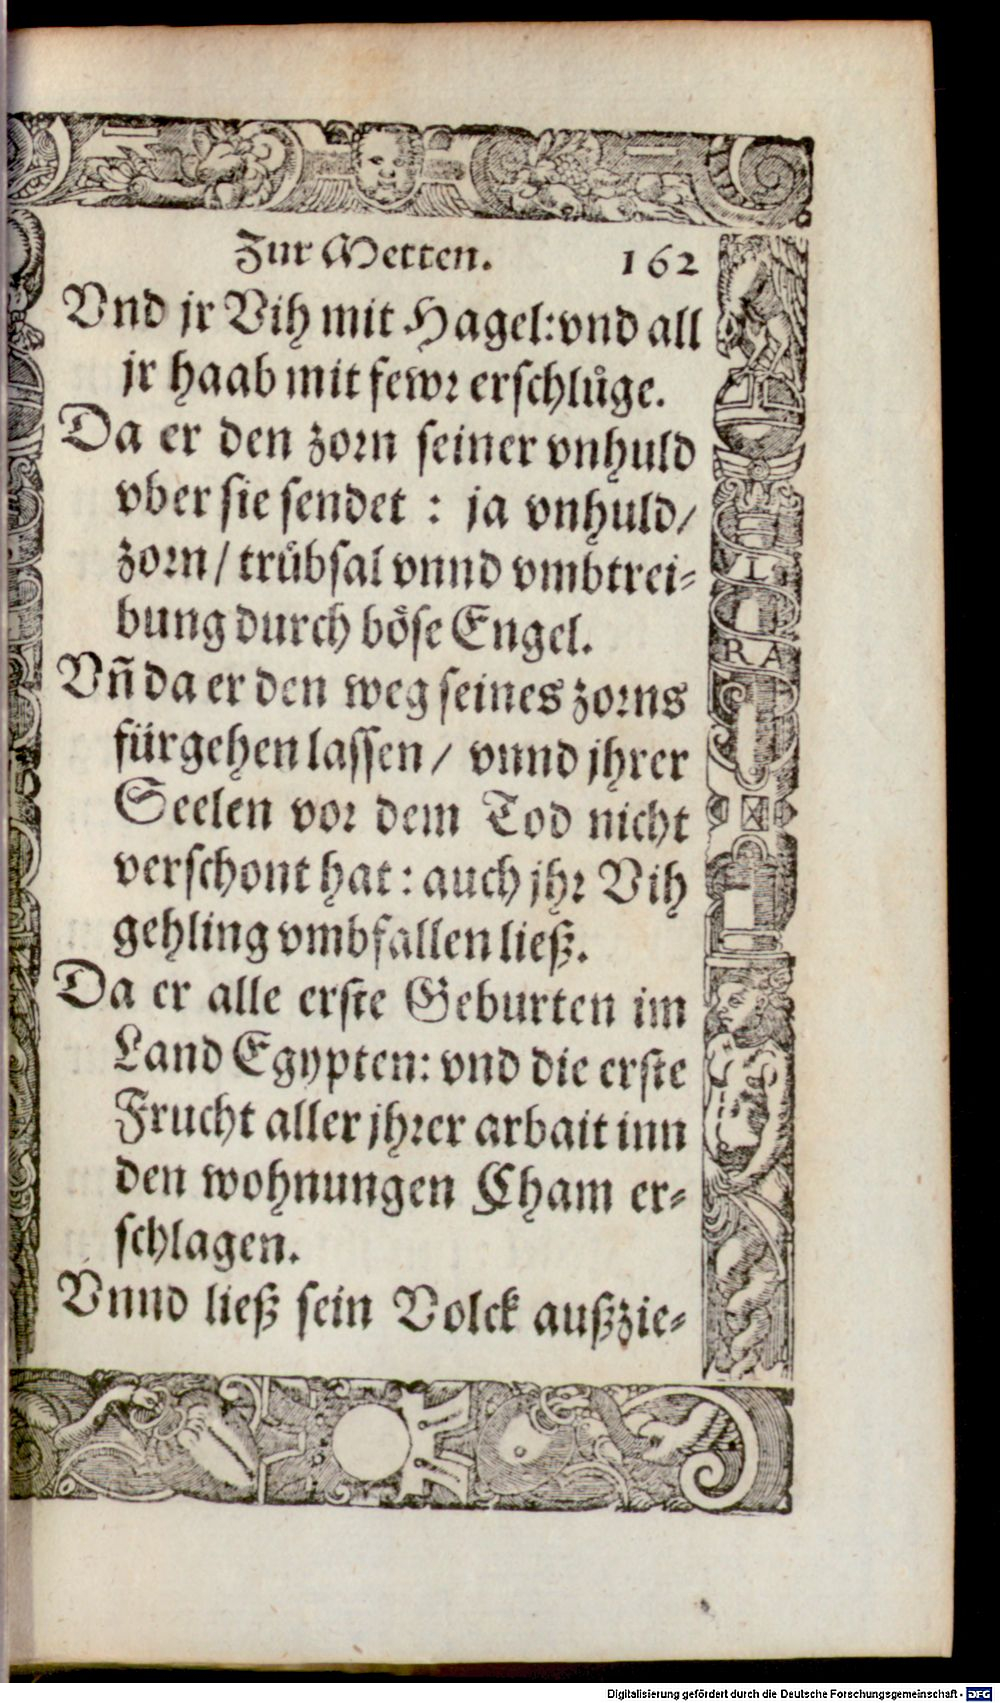 Zur Metten. 162
Vnd jr Vih mit Hagel: vnd all
jr haab mit fewr erschlůge.
Da er den zorn seiner vnhuld
vber sie sendet : ja vnhuld/
zorn / trůbsal vnnd vmbtrei⸗
bung durch böse Engel.
Vñ da er den weg seines zorns
fürgehen lassen / vnnd jhrer
Seelen vor dem Tod nicht
verschont hat : auch jhr Vih
gehling vmbfallen ließ.
Da er alle erste Geburten im
Land Egypten: vnd die erste
Frucht aller jhrer arbait inn
den wohnungen Cham er⸗
schlagen.
Vnnd ließ sein Volck außzie⸗
L
RA
Digitalisierung gefördert durch die Deutsche Forschungsgemeinschaft - DFG